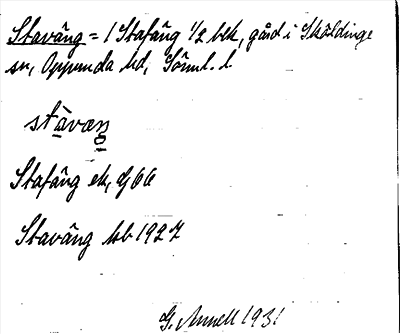 Staväng = 1 Stafäng 1/2 bek, gård i Sköldinge
sn, Oppunda hd, Söml. l.
stàvæŋ
Stafäng ek, G 66
Staväng kb 1927
G. Annell 1931